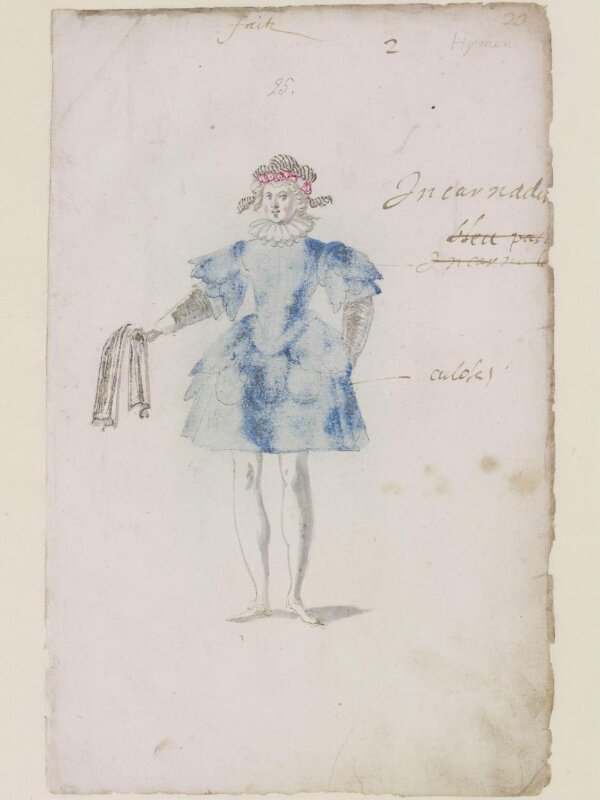 faik
2
Hymen
22
25.
Incarnadin
bleu pa
Incarn
culotes